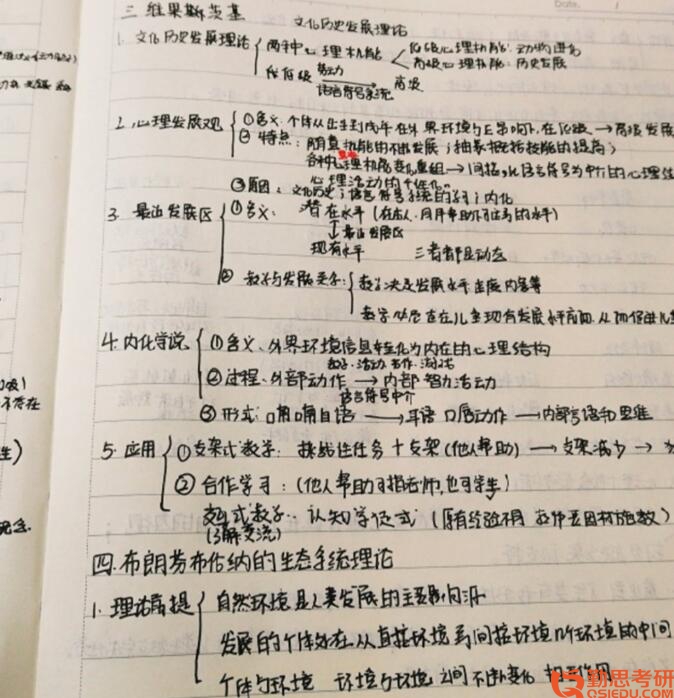 三 维果斯茨基
文化历史发展理论
1. 文化历史发展理论 两种心理机能 低级心理机能: 动物进化
高级心理机能: 历史发展
从低级 劳动 语言符号系统 高级
2. 心理发展观 ①含义: 个体从出生到成年 在外界环境与 影响下, 在低级 → 高级发展
② 特点: 随意机能的不断发展; 抽象概括技能的提高;
各种心理机能变化重组 → 间接, 以语言符号为中介的心理结
心理活动的个性化。
③原因: 文化历史; 语言符号系统的学习; 内化
3. 最近发展区 ①含义: 潜在水平 (在他人 帮助下可达的水平)
↕最近发展区
现有水平 三者都是动态
② 教学与发展关系: 教学决定发展水平 速度内容等
教学 在儿童现有发展水平前面, 从而促进儿童
4. 内化学说 ①含义、外界环境信息转化为内在的心理结构
教学、活动、
②过程、外部动作 → 内部智力活动
语言符号中介
③ 形式: 喃喃自语 → 耳语 口唇动作 → 内部言语和思维
5. 应用 ①支架式教学: 挑战性任务 + 支架(他人帮助) → 支架减少 →
② 合作学习: (他人帮助可指老师, 也可学生)
交互式教学: 认知学徒式 (原有经验不同
(了解交流)
四. 布朗芬布伦纳的生态系统理论
1. 理论前提 自然环境是人类发展的主要影响源
发展的个体处在从直接环境到间接环境几个环境的中间
个体与环境 环境与环境之间不断变化 相互作用
勤思考研
QSIEDU.COM